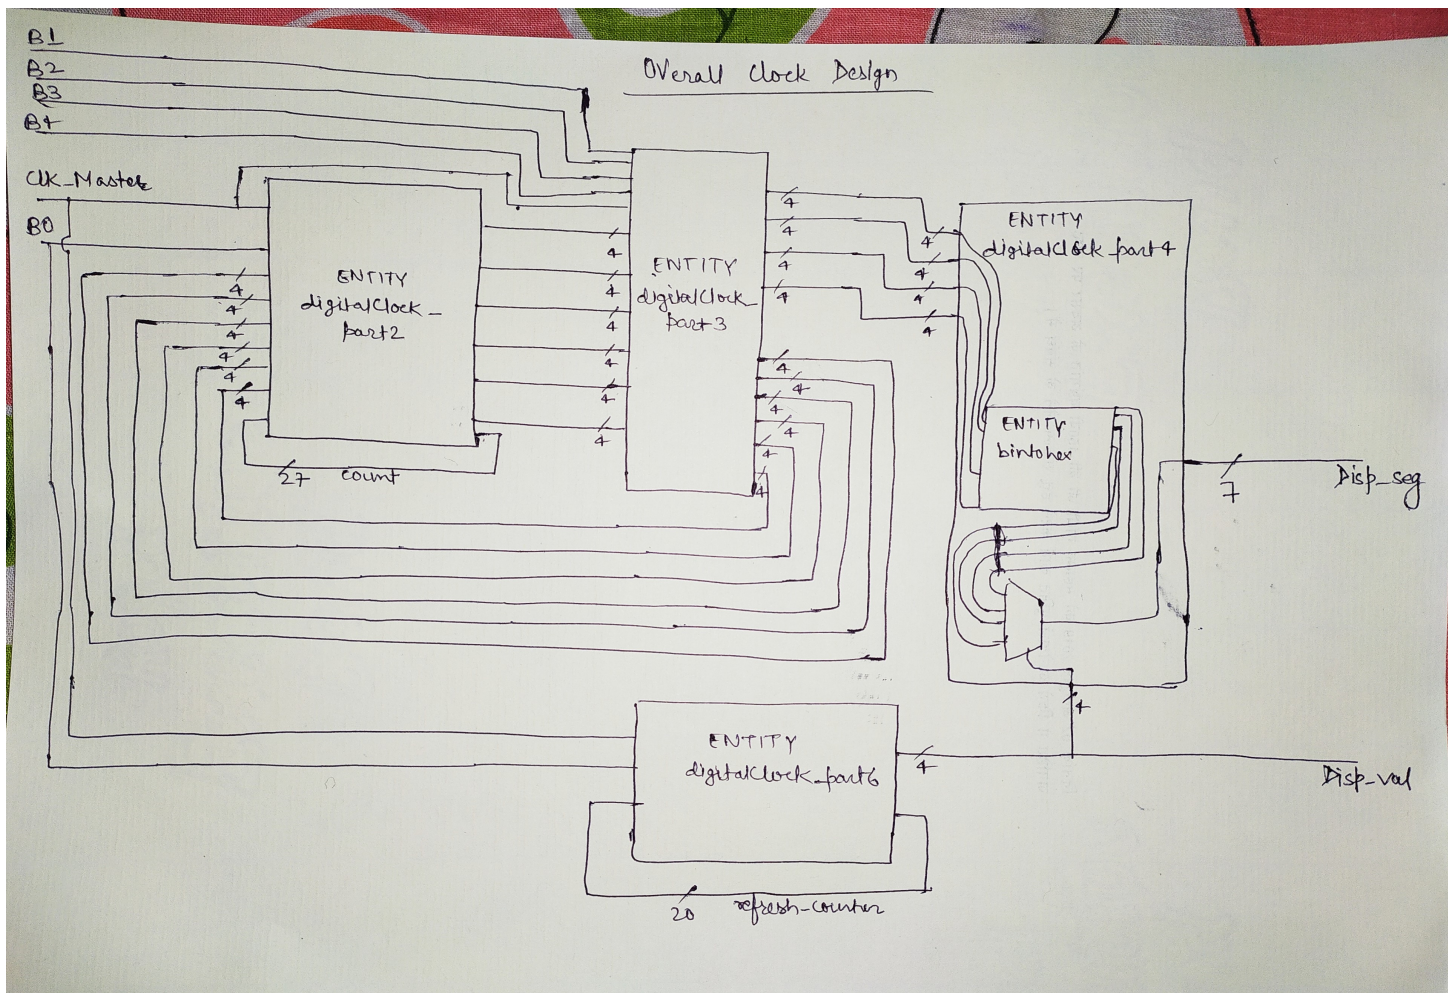 Overall Clock Design
B1
B2
B3
B4
Clk_Master
B0
ENTITY
digitalClock_
part2
4
4
4
4
4
4
27 count
4
4
4
4
4
4
ENTITY
digitalClock_
part3
4
4
4
4
4
4
4
4
4
4
4
4
4
4
ENTITY
digitalClock_part4
ENTITY
bintohex
7
Disp_seg
4
ENTITY
digitalClock_part6
4
Disp_val
20 refresh_counter